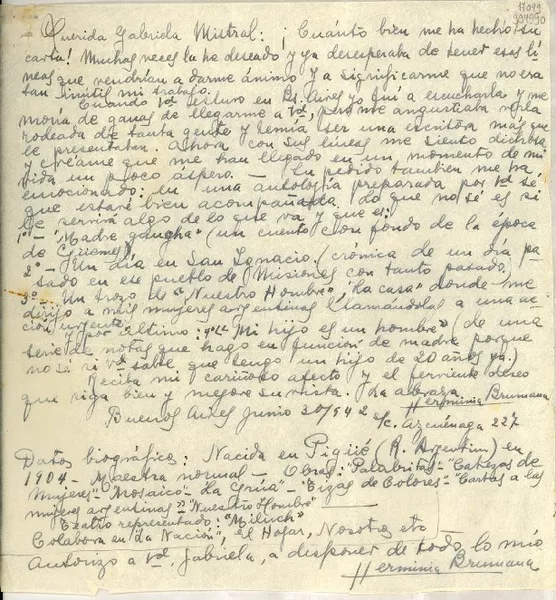 11049
994990
Querida Gabriela Mistral: ¡Cuánto bien me ha hecho su
carta! Muchas veces la he deseado y ya desesperaba de tener esas lí-
neas que vendrían a darme ánimo y a significarme que no era
tan inútil mi trabajo.
Cuando Vd. estuvo en Bs. Aires yo fuí a escucharla y me
moría de ganas de llegarme a Vd, pero me angustiaba verla
rodeada de tanta gente y temía ser una escritora más que
le presentaban. Ahora con sus líneas me siento dichosa
y créame que me han llegado en un momento de mi
vida un poco áspero. — Su pedido tambien me ha
emocionado: en una antología preparada por Vd. sé
que estaré bien acompañada. Lo que no sé es si
le servirá algo de lo que va y que es:
1º - "Madre gaucha" (un cuento con fondo de la época
de Güemes)
2º - Un día en San Ignacio. (crónica de un día pa-
sado en ese pueblo de Misiones con tanto pasado)
3º - Un trozo de "Nuestro Hombre" "La casa" donde me
dirijo a mis mujeres argentinas llamándolas a una ac-
ción urgente.
Y por último: 4º "Mi hijo es un hombre" (de una
serie de notas que hago en función de madre porque
no sé si Vd. sabe que tengo un hijo de 20 años ya.)
Reciba mi cariñoso afecto y el ferviente deseo
que siga bien y mejore su vista. La abraza
Herminia Brumana
Buenos Aires Junio 30/942
S/c. Azcuénaga 227
Datos biográficos: Nacida en Pigüé (R. Argentina) en
1904 - Maestra normal - Obras: "Palabritas" - "Cabezas de
mujeres" - "Mosaico" - "La Grúa" - "Tizas de Colores" - "Cartas a las
mujeres argentinas" - "Nuestro Hombre"
Teatro representado: "Miluch"
Colabora en "La Nación", el Hogar, Nosotros etc
Autorizo a Vd, Gabriela, a disponer de todo lo mío
Herminia Brumana